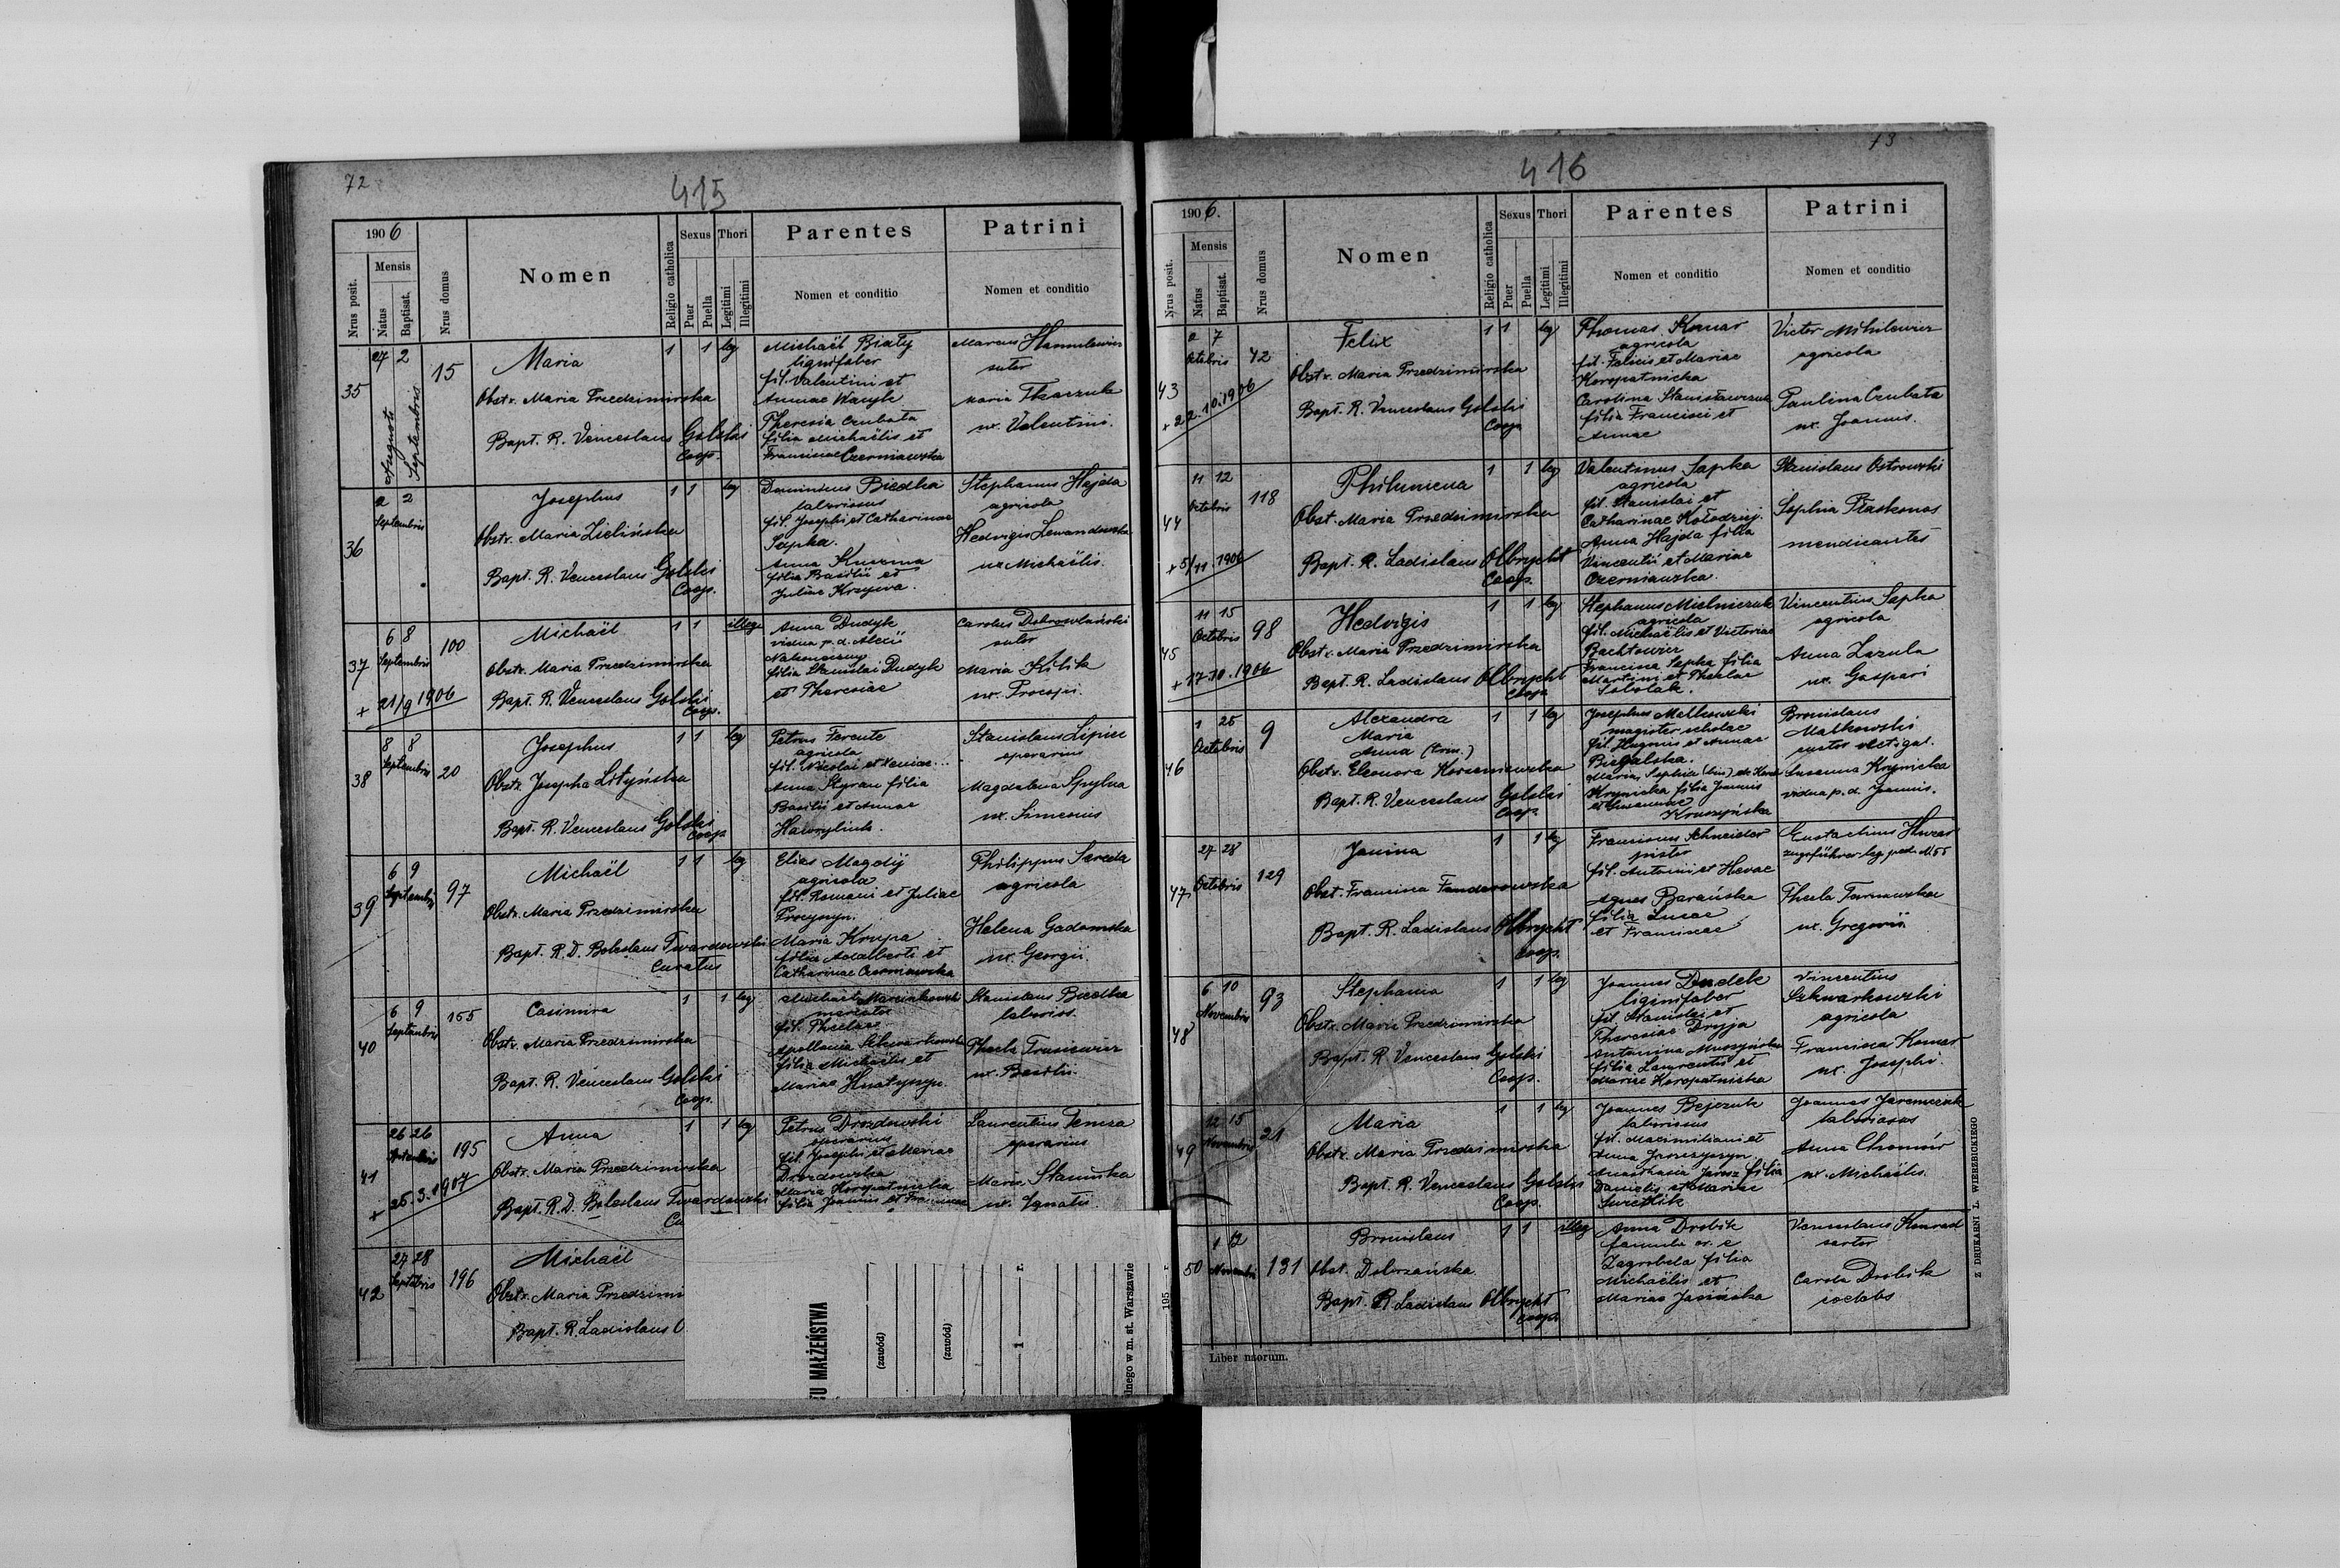 72
415
1906
Nrus posit.
Mensis
Natus
Baptisat.
Nrus domus
Nomen
Religio catholica
Sexus
Puer
Puella
Thori
Legitimi
Illegitimi
Parentes
Nomen et conditio
Patrini
Nomen et conditio
35
27 2
Augusti
Septembris
15
Maria
Obstr. Maria Przedzimirska
Bapt. R. Venceslaus Golski
Coop.
1 1 leg
Michaël Biały
lignifaber
fil. Valentini et
Annae Wanyk
Theresia Czubata
filia Michaëlis et
Franciscae Czerniawska
Marcus Hannulewicz
sutor
Maria Tkaczuk
ux. Valentini.
36
2 2
Septembris
Josephus
Obstr. Maria Zielińska
Bapt. R. Venceslaus Golski
Coop.
1 1 leg
Dominicus Biedka
laboriosus
fil. Josephi et Catharinae
Sapka.
Anna Kuzma
filia Basilii et
Juliae Krzywa.
Stephanus Hajda
agricola
Hedvigis Lewandowska
ux Michaëlis.
37
6 8
Septembris
100
+ 21/9 1906
Michaël
Obstr. Maria Przedzimirska
Bapt. R. Venceslaus Golski
Coop.
1 1 illeg
Anna Dudyk
vidua p. d. Alexii
filia Stanislai Dudyk
et Theresiae
Carolus Dobrowlański
sutor
Maria Kilik
ux. Procopii.
38
8 8
Septembris
20
Josephus
Obstr. Josepha Lityńska
Bapt. R. Venceslaus Golski
Coop
1 1 leg
Petrus Ferente
agricola
fil. Nicolai et Xeniae...
Anna Styran filia
Basilii et Annae
Hawryliuk.
Stanislaus Lipiec
operarius
Magdalena Spylna
ux. Simeonis
39
6 9
Septembris
97
Michaël
Obstr. Maria Przedzimirska
Bapt. R. D. Boleslaus Twardowski
Curatus
1 1 leg
Elias Magdij
agricola
fil. Romani et Juliae
Procyszyn.
Maria Krupa
filia Adalberti et
Catharinae Czerniawska
Philippus Sereda
agricola
Helena Gadomska
ux. Georgii.
40
6 9
Septembris
155
Casimira
Obstr. Maria Przedzimirska
Bapt. R. Venceslaus Golski
Coop.
1 1 leg
Michaël Marcinkowski
mercator
fil. Theclae
Apollonia Szkwarkowska
filia Michaëlis et
Mariae Hnatyszyn.
Stanislaus Biedka
laborios.
Thecla Trusiewicz
ux. Basilii.
41
26 26
195
+ 25.3.1907
Anna
Obstr. Maria Przedzimirska
Bapt. R. D. Boleslaus Twardowski
Cu
1 1 leg
Petrus Drozdowski
operarius
fil. Josephi et Mariae
Drozdowska
Maria Koropatnicka
filia Joannis et Franciscae
Laurentius Teniza
operarius
Maria Stanicka
ux. Ignatii.
42
27 28
Septebris
196
Michaël
Obstr. Maria Przedzimi
Bapt. R. Ladislaus O
TU MAŁŻEŃSTWA
(zawód)
(zawód)
1
lnego w m. st. Warszawie
195 r.
73
416
1906.
Nrus posit.
Mensis
Natus
Baptisat.
Nrus domus
Nomen
Religio catholica
Sexus
Puer
Puella
Thori
Legitimi
Illegitimi
Parentes
Nomen et conditio
Patrini
Nomen et conditio
43
2 7
Octobris
42
+ 22.10.1906
Felix
Obstr. Maria Przedzimirska
Bapt. R. Venceslaus Golski
Coop
1 1 leg
Thomas Komar
agricola
fil. Felicis et Mariae
Koropatnicka
Carolina Stanisławczuk
filia Francisci et
Annae
Victor Mihilewicz
agricola
Paulina Czubata
ux. Joannis.
44
11 12
Octobris
118
+ 5/11 1906
Philumena
Obst. Maria Przedzimirska
Bapt. R. Ladislaus Olbrycht
Coop.
1 1 leg
Valentinus Sapka
agricola
fil. Stanislai et
Catharinae Kołodziej.
Anna Hajda filia
Vincentii et Mariae
Czerniawska.
Stanislaus Ostrowski
Sophia Płaskonos
mendicantes
45
11 15
Octobris
98
+ 17.10.1906
Hedvigis
Obstr. Maria Przedzimirska
Bapt. R. Ladislaus Olbrycht
Coop
1 1 leg
Stephanus Mielniczuk
agricola
fil. Michaëlis et Victoriae
Bachtowicz
Francisca Sapka filia
Martini et Theclae
Sobolak.
Vincentius Sapka
agricola
Anna Zazula
ux. Gaspari
46
1 25
Octobris
9
Alexandra
Maria
Anna (trin.)
Obstr. Eleonora Korzeniewska
Bapt. R. Venceslaus Golski
Coop.
1 1 leg
Josephus Malkowski
magister scholae
fil. Hugonis et Annae
Biegalska.
Maria Sophia (bin)
Krynicka filia Joannis
et Susannae
Kruszyńska
Bronislaus
Malkowski
custos vectigal.
Susanna Krynicka
vidua p. d. Joannis.
47
27 28
Octobris
129
Janina
Obst. Francisca Fenderowska
Bapt. R. Ladislaus Olbrycht
Coop.
1 1 leg
Franciscus Schneider
pistor
fil. Antonii et Hevae
Agnes Barańska
filia Lucae
et Franciscae
Eustachius Huzar
zugsführer
Thecla Tarnawska
ux. Gregorii
48
6 10
Novembris
93
Stephania
Obstr. Maria Przedzimirska
Bapt. R. Venceslaus Golski
Coop.
1 1 leg
Joannes Dudek
lignifaber
fil. Stanislai et
Theresiae Dryja
Antonina Muszyńska
filia Laurentii et
Mariae Koropatnicka
Vincentius
Szkwarkowski
agricola
Francisca Komar
ux. Josephi.
49
12 15
Novembris
21
Maria
Obstr. Maria Przedzimirska
Bapt. R. Venceslaus Golski
Coop.
1 1 leg
Joannes Bejczuk
laboriosus
fil. Maximiliani et
Anna
Anasthasia Jarosz filia
Danielis et Mariae
Swietlik
Joannes Jaremczuk
laboriosus
Anna Chomów
ux Michaëlis.
50
1 12
Novembris
131
Bronislaus
Obst. Dobrzańska.
Bapt. R. Ladislaus Olbrycht
Coop
1 1 illeg
Anna Drobik
famula
Zagrobela filia
Michaëlis et
Mariae Jasińska
Venceslaus Konrad
sartor
Carola Drobik
coelebs
Liber natorum.
Z DRUKARNI L. WIERZBICKIEGO